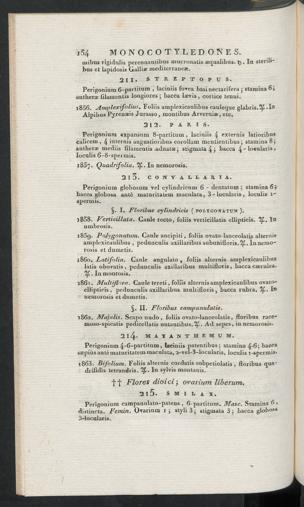 154 MONOCOTYLEDONES.
mibus rigidulis perennantibus mucronatis æqualibus. ♄. In sterili-
bus et lapidosis Galliæ mediterraneæ.
211. STREPTOPUS.
Perigonium 6-partitum, laciniis fovea basi nectarifera; stamina 6;
antheræ filamentis longiores; bacca lævis, cortice tenui.
1856. Amplexifolius. Foliis amplexicaulibus cauleque glabris. ♃. In
Alpibus Pyrenæis Jurasso, montibus Arverniæ, etc.
212. PARIS.
Perigonium expansum 8-partitum, laciniis 4 externis latioribus
calicem, 4 internis angustioribus corollam mentientibus; stamina 8;
antheræ mediis filamentis adnatæ; stigmata 4; bacca 4-locularis,
loculis 6-8-spermis.
1857. Quadrifolia. ♃. In nemorosis.
213. CONVALLARIA.
Perigonium globosum vel cylindricum 6-dentatum; stamina 6;
bacca globosa antè maturitatem maculata, 3-locularis, loculis 1-
spermis.
§. I. Floribus cylindricis (POLYGONATUM).
1858. Verticillata. Caule recto, foliis verticillatis ellipticis. ♃. In
umbrosis.
1859. Polygonatum. Caule ancipiti, foliis ovato-lanceolatis alternis
amplexicaulibus, pedunculis axillaribus subunifloris. ♃. In nemo-
rosis et dumetis.
1860. Latifolia. Caule angulato, foliis alternis amplexicaulibus
latis obovatis, pedunculis axillaribus multifloris, bacca cærulea.
♃. In montosis.
1861. Multiflora. Caule tereti, foliis alternis amplexicaulibus ovato-
ellipticis, pedunculis axillaribus multifloris, bacca rubra. ♃. In
nemorosis et dumetis.
§. II. Floribus campanulatis.
1862. Majalis. Scapo nudo, foliis ovato-lanceolatis, floribus race-
moso-spicatis pedicellatis nutantibus. ♃. Ad sepes, in nemorosis.
214. MAYANTHEMUM.
Perigonium 4-6-partitum, laciniis patentibus; stamina 4-6; bacca
sæpius antè maturitatem maculata, 2-vel-3-locularis, loculis 1-spermis.
1863. Bifolium. Foliis alternis cordatis subpetiolatis, floribus qua-
drifidis tetrandris. ♃. In sylvis montanis.
†† Flores dioici; ovarium liberum.
215. SMILAX.
Perigonium campanulato-patens, 6-partitum. Masc. Stamina 6,
distincta. Femin. Ovarium 1; styli 3; stigmata 3; bacca globosa
3-locularis.